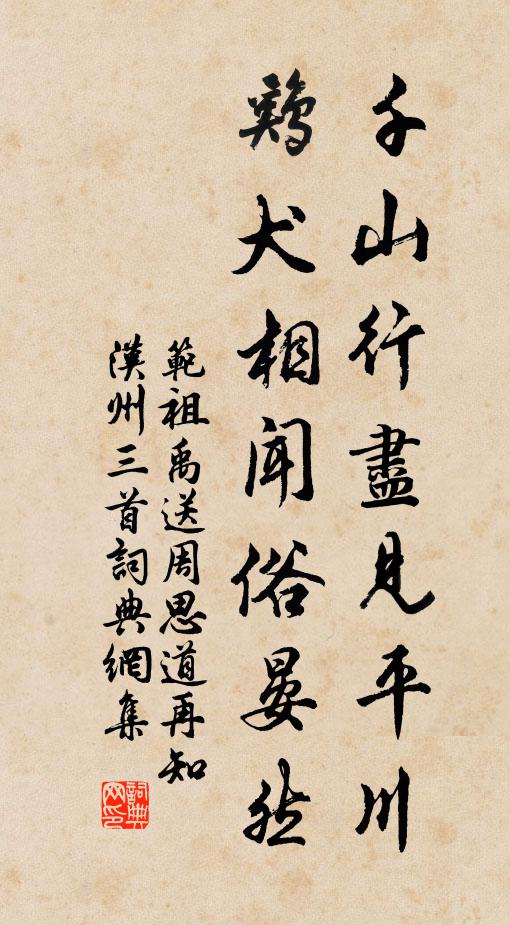 千山行盡見平川
鷄犬相聞俗晏然
範祖禹送周思道再知
漢州三首詞典網集
詞典网印